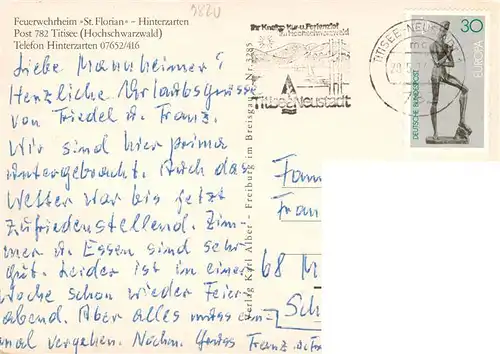 Feuerwehrheim »St. Florian« – Hinterzarten
Post 782 Titisee (Hochschwarzwald)
Telefon Hinterzarten 07652/416
Liebe Mannheimer!
Herzliche Urlaubsgrüsse
von Friedel u. Franz.
Wir sind hier prima
untergebracht. Auch das
Wetter war bis jetzt
zufriedenstellend. Zim-
mer u. Essen sind sehr
gut. Leider ist in einer
Woche schon wieder Feier-
abend. Aber alles muss ein-
mal vergehen. Nochm. Gruss Franz u. Fr
Verlag Karl Alber – Freiburg im Breisgau Nr. 3285
Ihr Kneipp Kur- u. Ferienziel
im Hochschwarzwald
Titisee Neustadt
TITISEE-NEUSTADT
30
EUROPA
DEUTSCHE BUNDESPOST
Fam
Fran
68 M
Sch